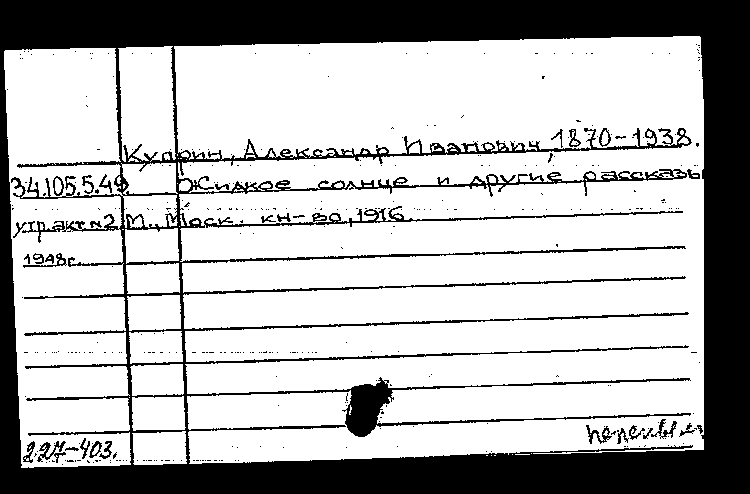 Куприн, Александр Иванович, 1870-1938.
34.105.5.49. Жидкое солнце и другие рассказы
утр. акт №2 М., Моск. кн-во, 1916
1948г.
227-403.